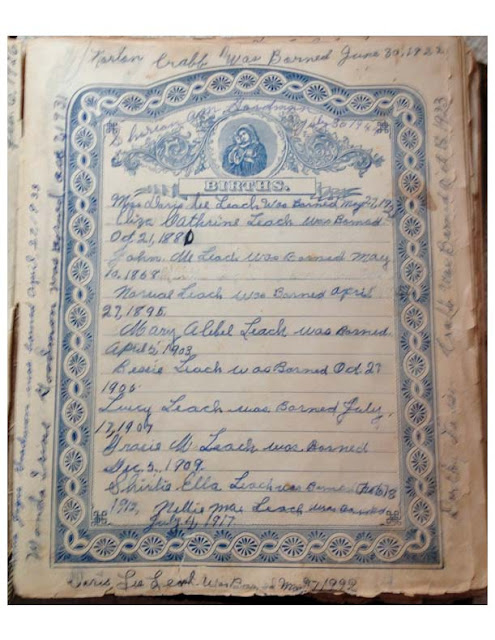 Norlan Crabb Was Borned June 30, 1822
Sharian Ann Goodman July 30 194
BIRTHS.
Miss Doris Lee Leach Was Borned May 27, 19
Eliza Cathrine Leach was Borned
Oct 21, 1880
John M Leach Was Borned May
10, 1868
Norval Leach was Borned April
27, 1895
Mary Alibel Leach was Borned
April 5, 1903
Bessie Leach was Borned Oct. 27
1905
Lucy Leach was Borned July
17, 1907
Grasie M Leach was Borned
Dec. 5, 1909
Shirlie Ella Leach was Borned (Feb) 3
1913, Nellie Mae Leach was Borned
July 4, 1917
Doris Lee Leach Was Borned May 27, 1922
Goodman was borned April 22, 1933
Wanda Irene Goodman was Borned Oct 31, 1931
Crabb was Borned Oct 8, 1933